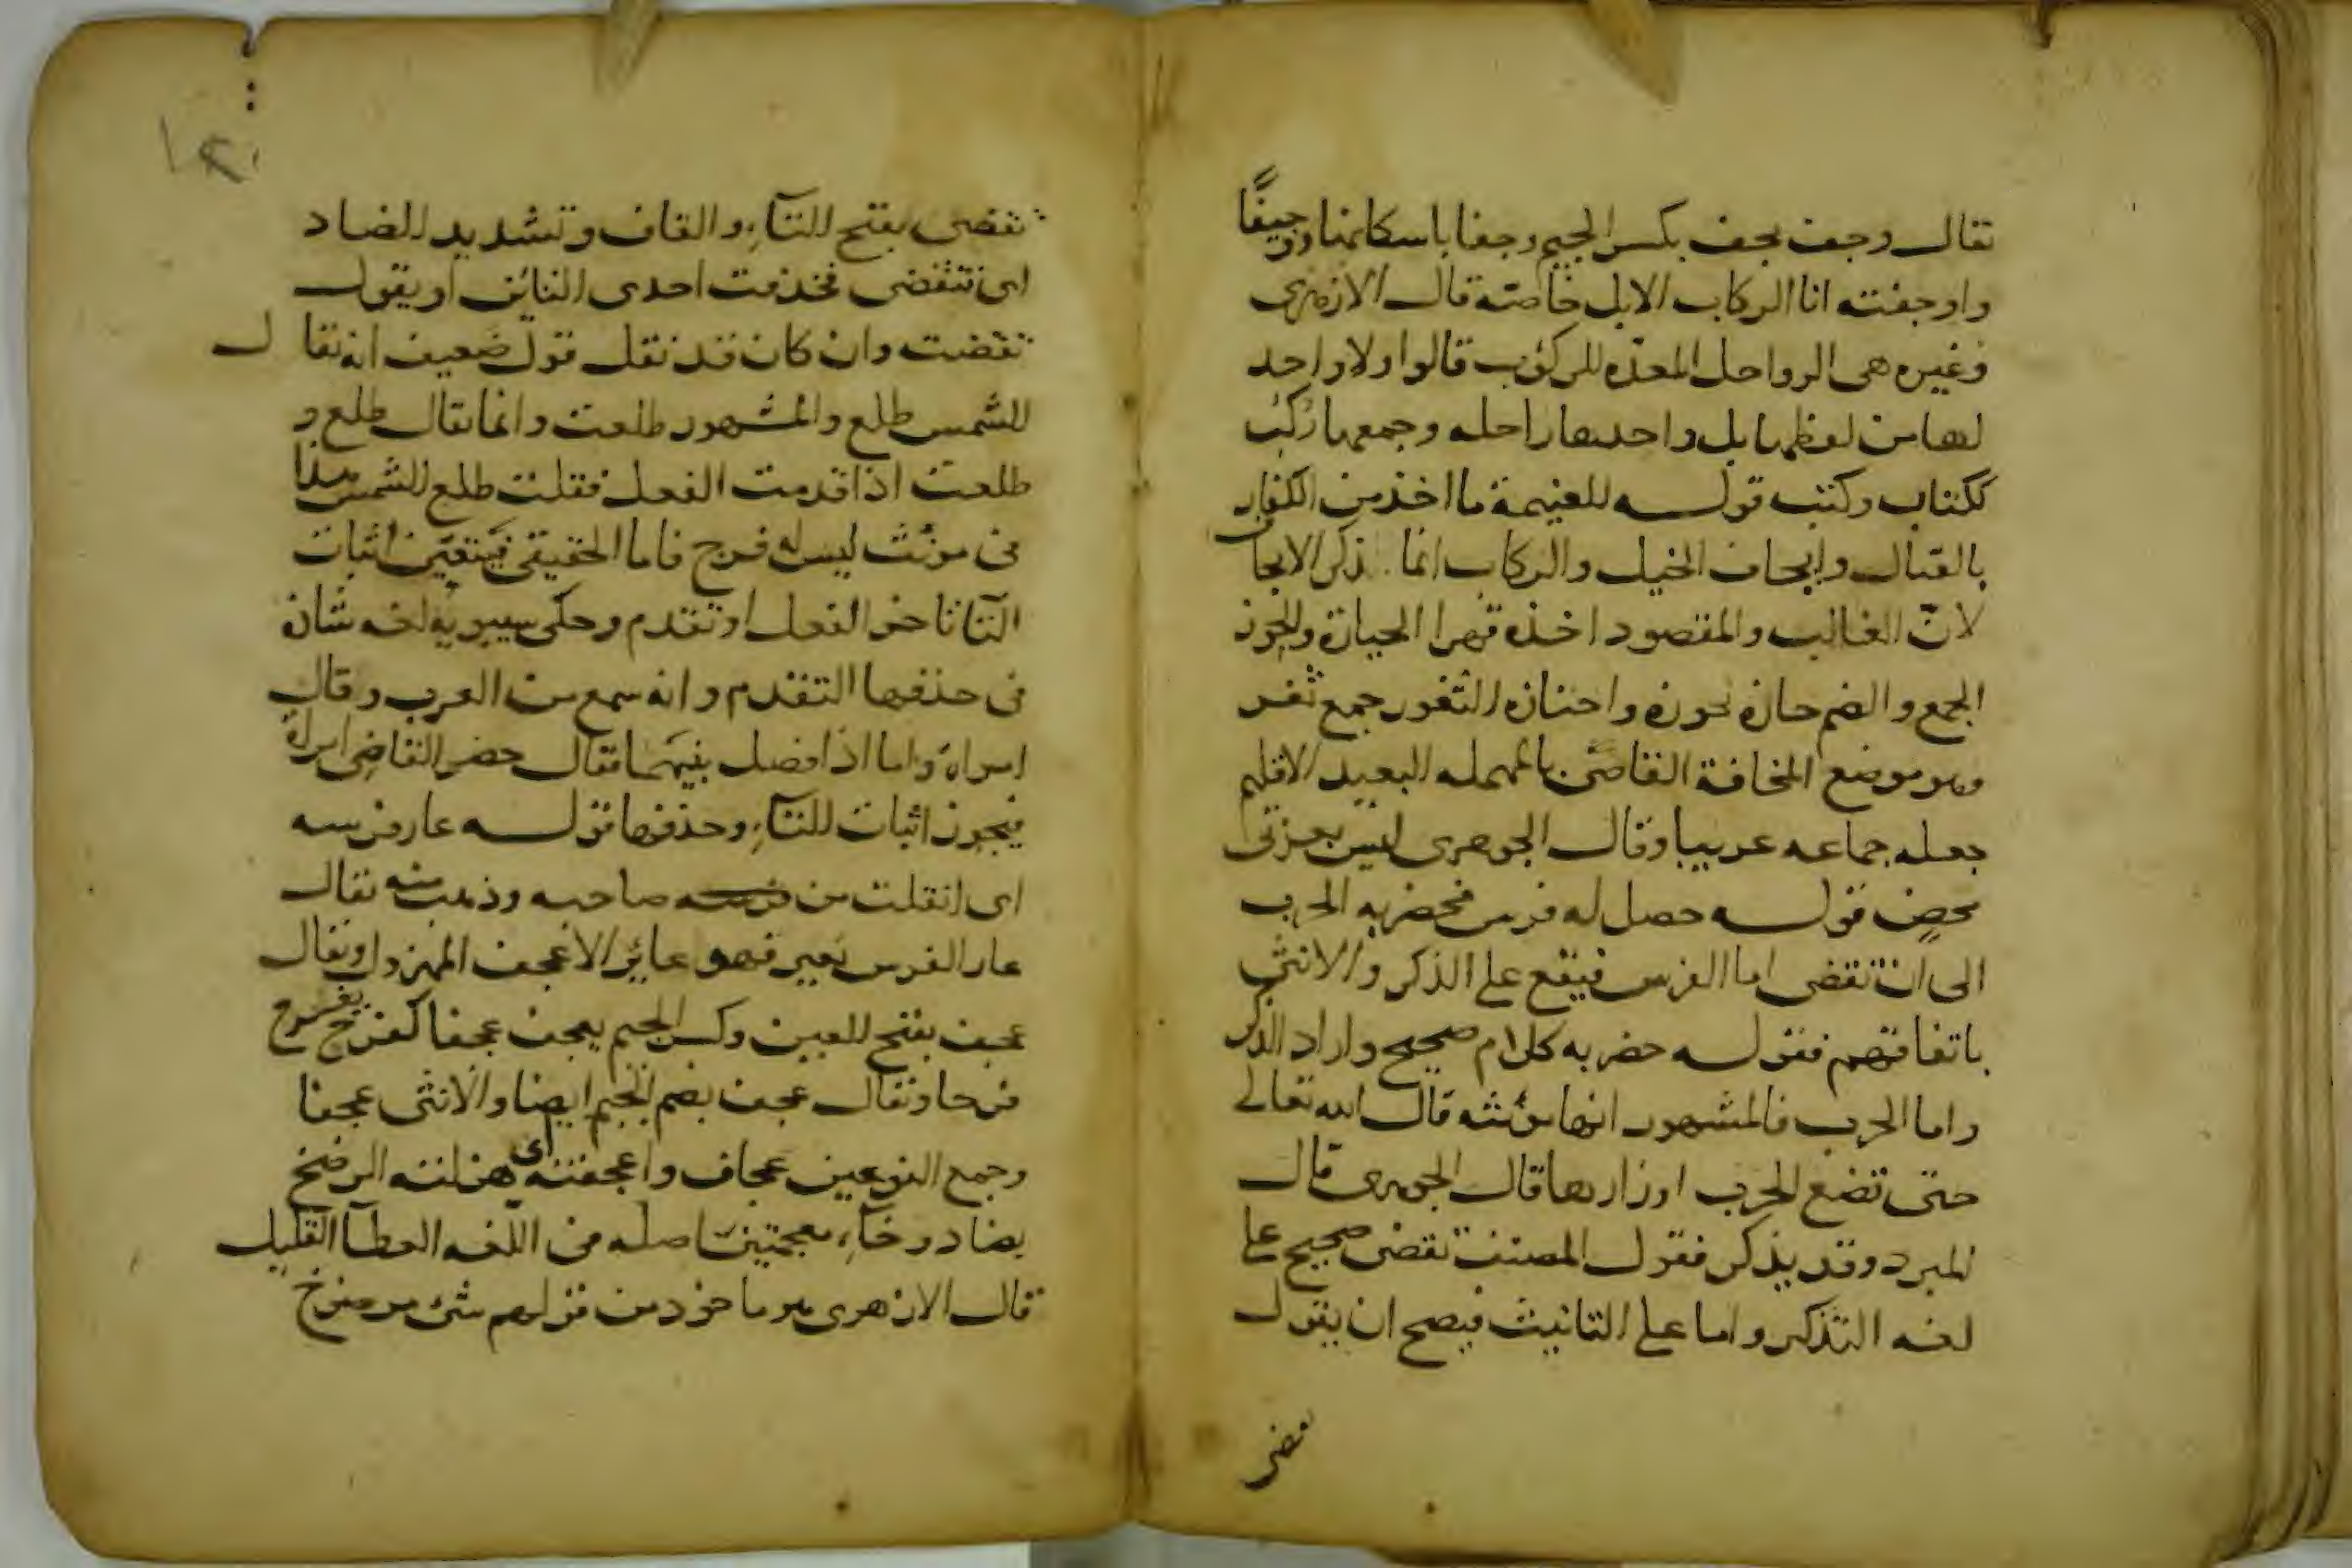 يقال وجف يجف بكسر الجيم وجفا باسكانها ووجيفًا
واوجفته انا الركاب الابل خاصة قال الازهري
وغيره هي الرواحل المعدّه للركوب قالوا ولا واحد
لها من لفظها بل واحدها راحله وجمعها رُكُب
ككتاب وكتب قوله الغنيمة ما اخذ من الكفار
بالقتال وايجاف الخيل والركاب انما ذكر الايجاف
لانّ الغالب والمقصود اخذه قهرا الحيازة والحوز
الجمع والضم حازه يحوزه واحتازه الثغور جمع ثغر
وهو موضع المخافة القاصي بالمهمله البعيد الاقليم
جعله جماعه عربيا وقال الجوهرى ليس بعربي
محضٍ قوله حصل له فرس فحضر به الحرب
الى ان تقضى اما الفرس فيقع على الذكر والانثى
باتفاقهم فقوله حضر به كلام صحيح واراد الذكر
واما الحرب فالمشهور انها مؤنثه قال الله تعالى
حتى تضع الحرب اوزارها قال الجوهرى قال
المبرد وقد يذكر فقول المصنف تقضى صحيح على
لغه التذكير واما على التانيث فيصح ان يقول
تقضى
تقضى بفتح التآءِ والقاف وتشديد الضاد
اى تتقضى فحذفت احدى التائين او يقول
تقضت وان كان قد نقل قول ضعيف انه يقال
للشمس طلع والمشهور طلعت وانما يقال طلع و
طلعت اذا قدمت الفعل فقلت طلع الشمس هذا
في مؤنث ليس له فرج فاما الحقيقي فيتعيّن اثبات
التا تاخر الفعل او تقدم وحكى سيبويه لغه شاذه
في حذفها التقدم وانه سمع من العرب وقال
امراة واما اذا فصل بينهما فقال حضر القاضي امراة
فيجوز اثبات التآءِ وحذفها قوله عار فرسه
اى انفلت من صاحبه وذهب منه يقال
عار الفرس يعير فهو عائر الاعجف المهزول ويقال
عجف بفتح العين وكسر الجيم يعجف عجفا كفرح يفرح
فرحا ويقال عجف بضم الجيم ايضا والانثى عجفا
وجمع النوعين عجاف واعجفته اى هزلته الرضخ
بضاد وخآءٍ معجمتين اصله في اللغه العطآ القليل
قال الازهرى هو ماخوذ من قولهم شئ مرضوخ